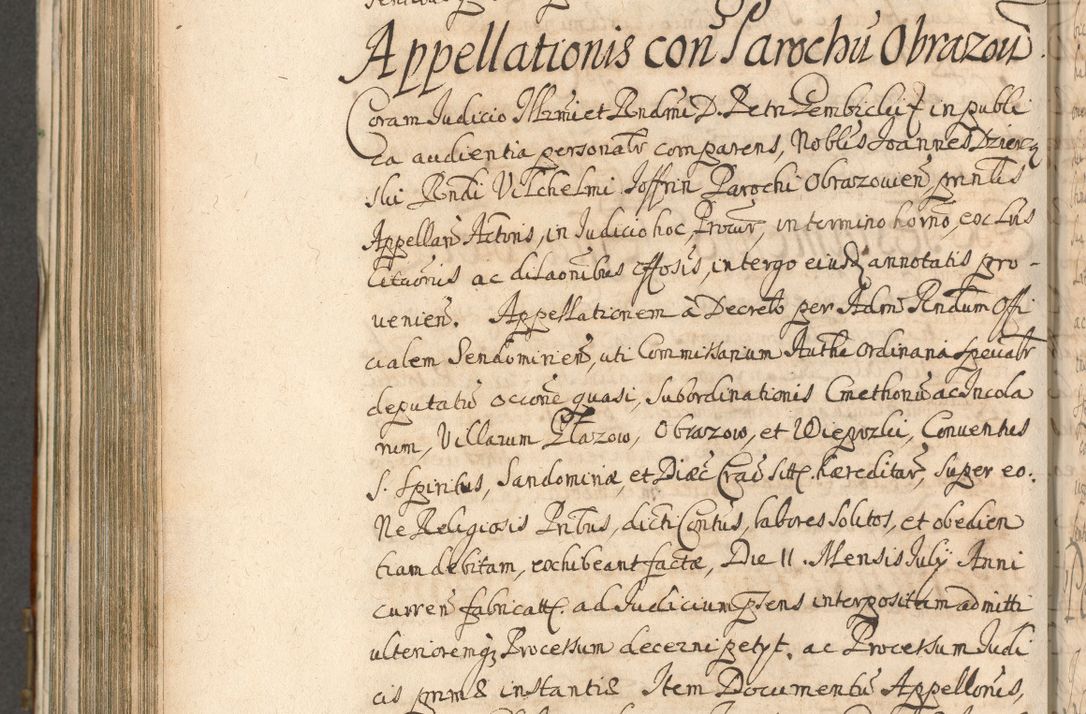 Appellationis con̄ Parochū Obrazou
Coram Judicio Illrmi et Rndmi D. Petri Pembiclii J in publi
ca audientia personalr comparens, Noblis Joannes Dzierz
ski Rndi Vilchelmi Joffrin Parochi Obrazovien̄ prntis
Appellan̄ Actoris, in Judicio hoc, Procur, in termino horno, ex
citaōnis ac dilaōnibus intergo eiusdq annotatis pro-
venien̄. Appellationem à Decreto per Adm̄ Rndum Offi
cialem Sendomirien̄, uti Commissarium Authe Ordinaria specialr
deputatū occōne quasi, Subordinationis Cmethonū ac Incola
rum, Villarum Płazow, Obrazow, et Wiepozki, Conventus
S. Spiritus, Sandominæ, et Diæc Crac̄ sitt. hæreditar, super eo.
Ne Religiosis Prībus, dicti Con̄tus, labores solitos, et obedien
tiam debitam, exhibeant factæ, Die 11. Mensis July Anni
curren̄ fabricatt. ad Judicium p̄sens interpositam admitti
ulterioremq Processum decerni petyt. ac Processum Judi
cis prim& instanti& Item Documentū Appellōnis,